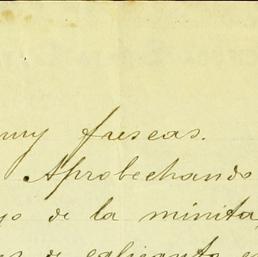 muy frescas.
Aprobechando
yo de la minita
es de caliganto e